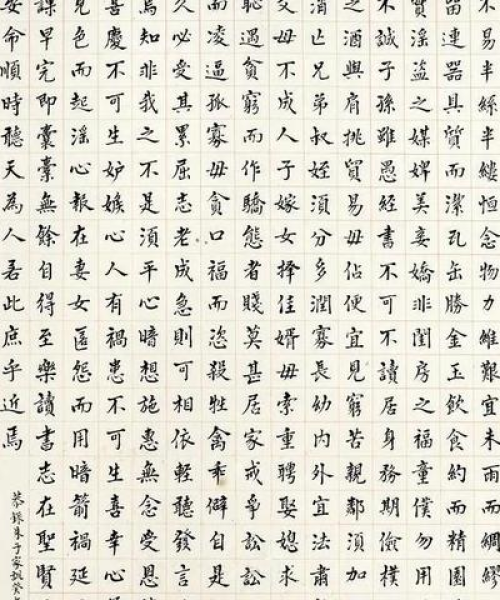 不易半絲半縷恒念物力維艱宜未雨而綢繆
留連器具質而潔瓦缶勝金玉飲食約而精園
實淫盜之媒婢美妾嬌非閨房之福童僕勿用
不誠子孫雖愚經書不可不讀居身務期儉樸
之酒與肩挑貿易毋佔便宜見窮苦親鄰須加
消亡兄弟叔姪須分多潤寡長幼內外宜法肅
父母不成人子嫁女擇佳婿毋索重聘娶媳求
恥遇貧窮而作驕態者賤莫甚居家戒爭訟訟
而凌逼孤寡毋貪口福而恣殺牲禽乖僻自是
久必受其累屈志老成急則可相依輕聽發言
焉知非我之不是須平心暗想施惠無念受恩
喜慶不可生妒嫉心人有禍患不可生喜幸心
見色而起淫心報在妻女匿怨而用暗箭禍延
課早完即囊橐無餘自得至樂讀書志在聖賢
安命順時聽天為人若此庶乎近焉
恭錄朱子家訓癸